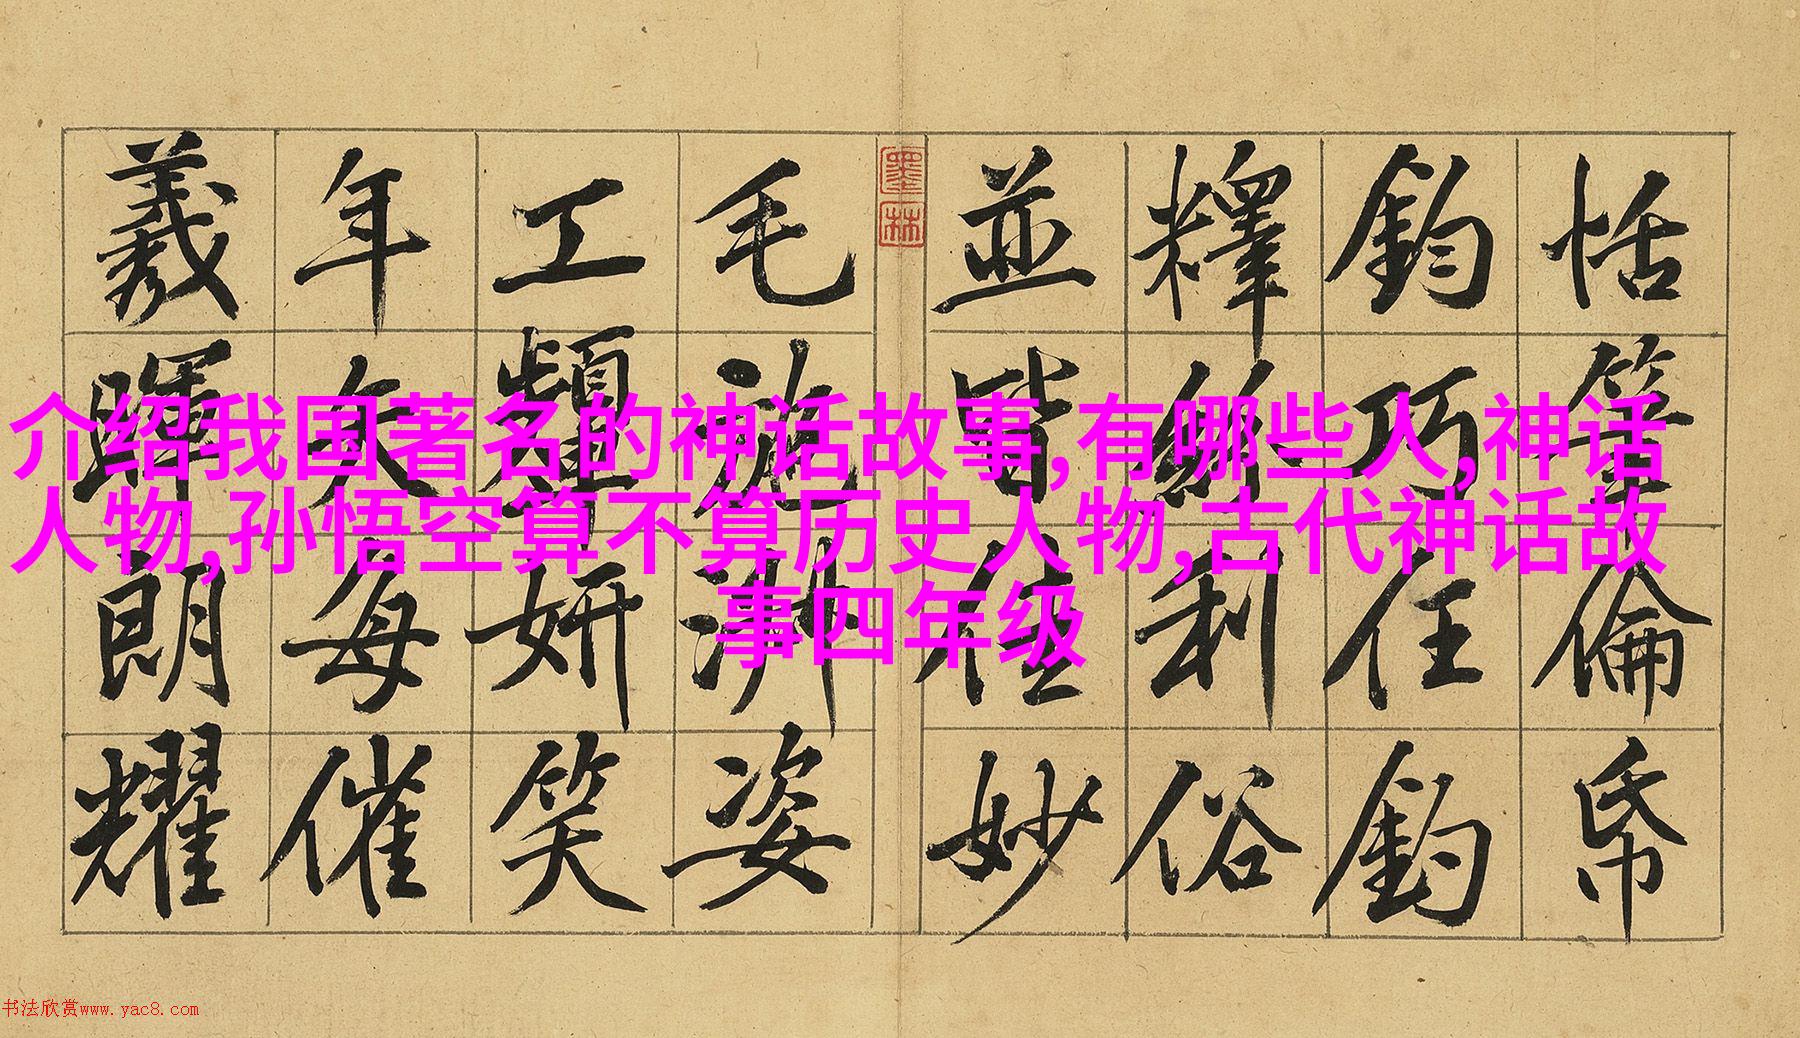 介绍我国著名的神话故事,有哪些人,神话
人物,孙悟空算不算历史人物,古代神话故
事四年级
恬筆倫帋
鈞巧任釣
釋紛利俗
並皆佳妙
毛施淑姿
工顰妍笑
年矢每催
羲暉朗耀
墨林
书法欣赏www.yac8.com